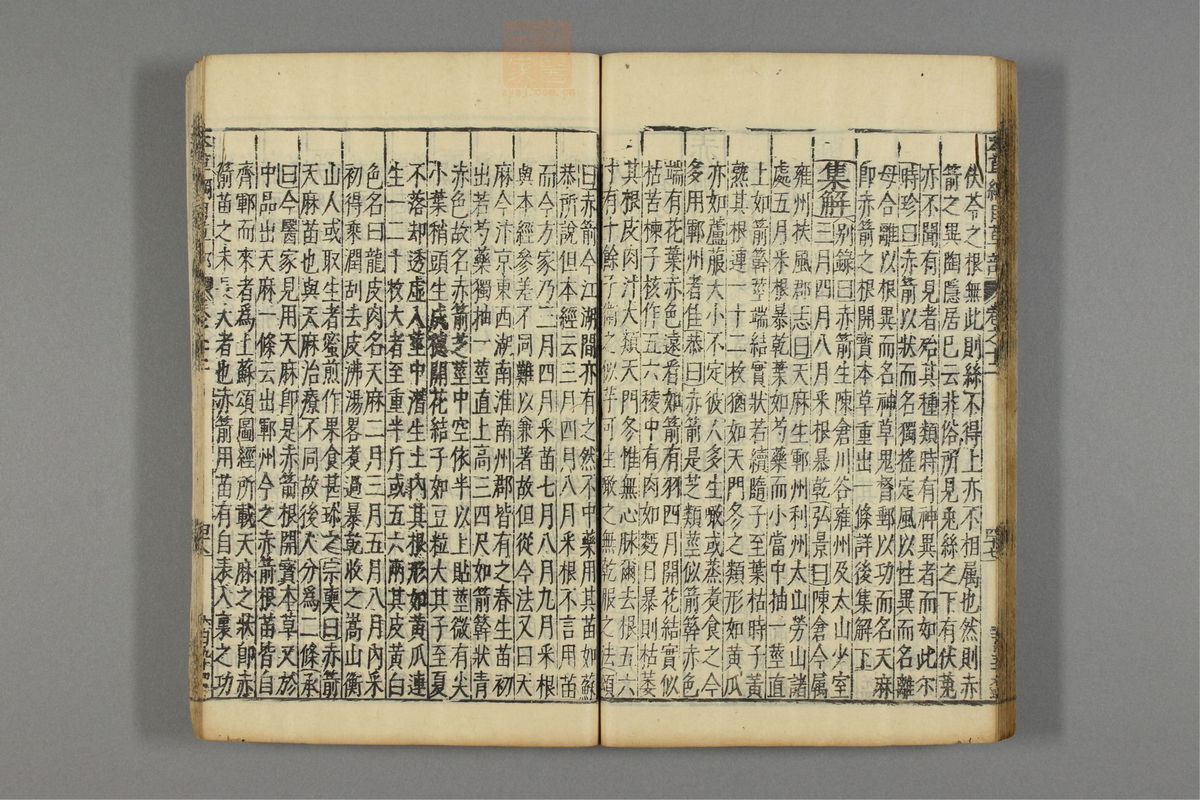 伏苓之根無此則絲不得上亦不相属也然則赤
箭之異陶隱居已云非俗所見菟絲之下有伏菟
亦不聞有見者殆其種類時有神異者而如此尔
時珍曰赤箭以狀而名獨搖定風以性異而名離
母合離以根異而名神草鬼督郵以功而名天麻
即赤箭之根開寶本草重出一條詳後集解下
集解别錄曰赤箭生陳倉川谷雍州及太山少室
三月四月八月采根暴乾弘景曰陳倉今属
雍州扶風郡志曰天麻生鄆州利州太山勞山諸
處五月采根暴乾葉如芍藥而小當中抽一莖直
上如箭簳莖端結實狀若續隨子至葉枯時子黃
熟其根連一十二枚猶如天門冬之類形如黃瓜
亦如蘆菔大小不定彼人多生噉或蒸煮食之今
多用鄆州者佳恭曰赤箭是芝類莖似箭簳赤色
端有花葉赤色遠看如箭有羽四月開花結實似
枯苦楝子核作五六稜中有肉如麪日暴則枯萎
其根皮肉汁大類天門冬惟無心脉爾去根五六
寸有十餘子衛之似芋可生噉之無乾服之法頌
曰赤箭今江湖間亦有之然不中藥用其苗如蘇
恭所說但本經云三月四月八月采根不言用苗
而今方家乃三月四月采苗七月八月九月采根
與本經參差不同難以兼著故但從今法又曰天
麻今汴京東西湖南淮南州郡皆有之春生苗初
出若芍藥獨抽一莖直上高三四尺如箭簳狀青
赤色故名赤箭芝莖中空依半以上貼莖微有尖
小葉稍頭生成穗開花結子如豆粒大其子至夏
不落却透虛入莖中潛生土內其根形如黃瓜連
生一二十枚大者至重半斤或五六兩其皮黃白
色名曰龍皮肉名天麻二月三月五月八月內采
初得乘潤刮去皮沸湯畧煮過暴乾收之嵩山衡
山人或取生者蜜煎作果食甚珍之宗奭曰赤箭
天麻苗也與天麻治療不同故後人分爲二條承
曰今醫家見用天麻即是赤箭根開寶本草又於
中品出天麻一條云出鄆州今之赤箭根苗皆自
齊鄆而來者爲上蘇頌圖經所載天麻之狀即赤
箭苗之未長大者也赤箭用苗有自表入裏之功